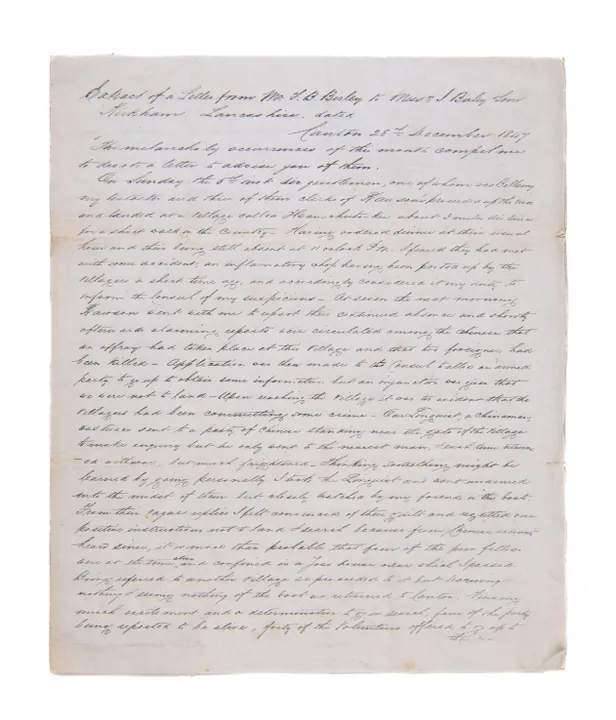 Extract of a Letter from Mr. F. B Birley to Messrs. J Birley Sons
Kirkham Lancashire. dated
Canton 28th December 1847
"The melancholy occurrences of the month compel me
to devote a letter to advise you of them.
On Sunday the 5th inst six gentlemen, one of whom was
my and of them clerks of Rawson's proceeded up the river
and landed at a Village called about 3 miles distance
for a short walk in the Country - Having ordered dinner at their usual
hour and their being still absent at 11 o'clock P.M. I feared they had met
with some accident, an inflammatory chop having been posted up by the
Villagers a short time ago, and accordingly considered it my duty to
inform the Consul of my suspicions - At seven the next morning
Rawson sent with me to report their continued absence and shortly
afterwards alarming reports were circulated among the Chinese that
an affray had taken place at this Village and that two foreigners had
been killed - Application was then made to the Consul to allow an armed
party to go up to obtain some information but an injunction was given that
we were not to land - Upon reaching the Village it was so evident that the
Villagers had been committing some crime - Our Linguist, a Chinaman,
was sent to a party of Chinese standing near the gate of the Village
to make enquiry but he only went to the nearest man, and return
-ed with much frightened - Thinking something might be
learned by going personally I took the Linguist and went unarmed
into the midst of them but closely watched by my friends in the boat.
From their vague replies I felt convinced of their guilt and regretted our
positive instructions not to land & search because from Chinese account
heard since, it is more than probable that four of the poor fellows
were at the time alive and confined in a Joss house near which I passed
Being referred to another Village we proceeded to it but learning
nothing & seeing nothing of the boat we returned to Canton. Finding
much excitement and a determination to go in search, four of the party
being reported to be alive, forty of the Volunteers offered to go up to